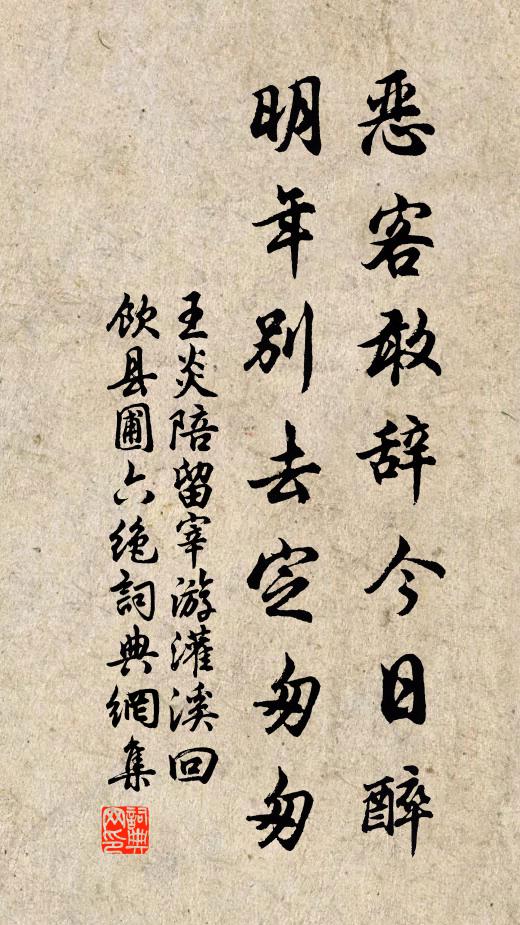 恶客敢辞今日醉
明年别去定匆匆
王炎陪留宰游灌溪回
饮县圃六绝詞典網集
詞典
网印